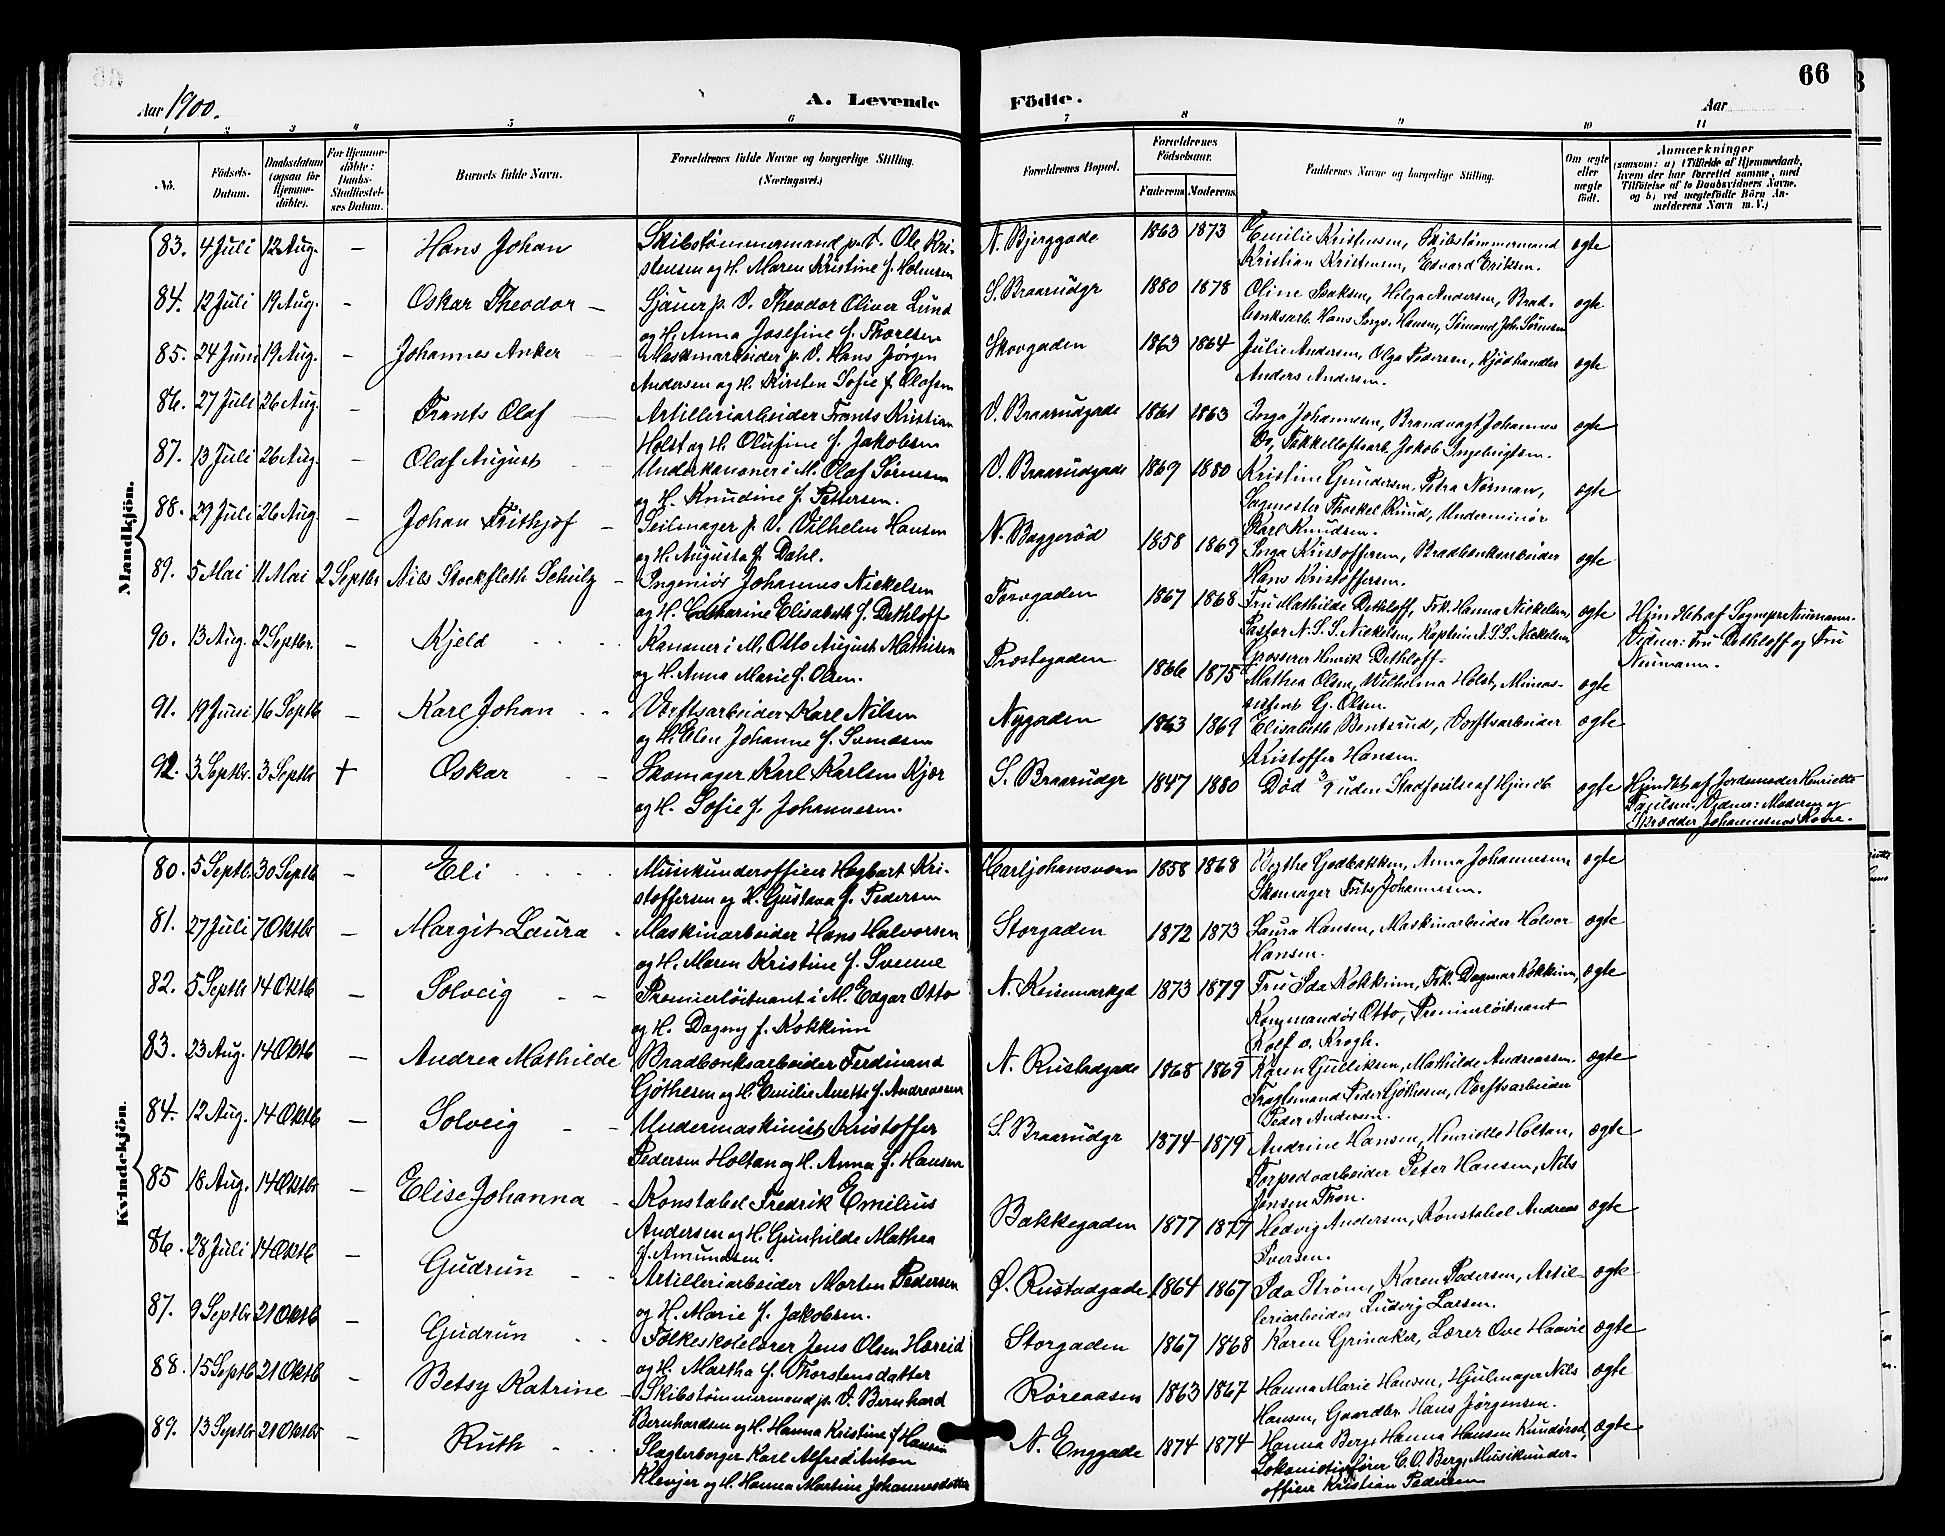 66
Aar 1900.
A. Levende Födte.
Aar
1 2 3 4 5 6 7 8 9 10 11
No.
Födsels-Datum.
Daabsdatum (ogsaa för Hjemmedöbte).
For Hjemmedöbte: Daabs-Stadfæstelses Datum.
Barnets fulde Navn.
Forældrenes fulde Navne og borgerlige Stilling. (Næringsvei.)
Forældrenes Bopæl.
Forældrenes Födselsaar.
Faderens. Moderens.
Faddernes Navne og borgerlige Stilling.
Om ægte eller uægte födt.
Anmærkninger
(saasom: a) i Tilfælde af Hjemmedaab, hvem der har forrettet samme, med Tilföielse af to Daabsvidners Navne, og b) ved uægtefödte Börn Anmelderens Navn m. V.)
Mandkjön.
83. 4 Juli 12 Aug. — Hans Johan Skibstømmermand p. V. Ole Kri- N. Bjerggade 1863 1873 Emilie Kristensen, Skibstømmermand ægte
stensen og H. Maren Kristine f. Kristian Kristensen, Edvard Eriksen.
84. 12 Juli 19 Aug. — Oskar Theodor — Sjauer p. V. Theodor Oliver Lund S. Braarudgr 1880 1878 Oline Isaksen, Helga Andersen, Brad- ægte
og H. Anna Josefine f. Thorlsen benksarb. Hans Hansen, Sømand Joh. Sørensen
85. 24 Juni 19 Aug. — Johannes Anker Maskinarbeider p. V. Hans Jörgen Skovgaden 1863 1864 Julie Andersen, Olga Pedersen, Kjødhandler ægte
Andersen og H. Kirsten Sofie f. Olafsen Anders Andersen.
86. 27 Juli 26 Aug. — Frants Olaf Artilleriarbeider Frants Kristian V. Braarudgade 1861 1863 Inga Johannesen, Brandvagt Johannes ægte
Holst og H. Olufine f. Jakobsen Takkelloftsarb. Jakob Ingebrigtsen.
87. 13 Juli 26 Aug. — Olaf August Underkanoner i M. Olaf Sørensen V. Braarudgade 1869 1880 Kristine Gundersen, Petra Norman, ægte
og H. Knudine f. Pettersen. Sagmester Thorkel Rund, Underminör
Karl Knudsen.
88. 29 Juli 26 Aug. — Johan Frithjof — Seilmager p. V. Vilhelm Hansen N. Baggerød 1858 1869 Inga Kristoffersen, Bradbenkarbeider ægte
og H. Augusta f. Dahl. Hans Kristoffersen.
89. 5 Mai 11 Mai 2 Septbr Nils Stockfleth Schulz — Ingeniör Johannes Nickelsen Torvgaden 1867 1868 Fru Mathilde Dethloff, Frk. Hanna Nickelsen, ægte Hjemdöbt af Sognepr. Neumann.
og H. Catharine Elisabeth f. Dethloff Pastor N. S. S. Nickelsen, Kaptein N. S. S. Nickelsen Vidner: Fru Dethloff og Fru
Grosserer Henrik Dethloff. Neumann.
90. 13 Aug. 2 Septbr. — Kjeld Kanoner i M. Otto August Mathisen Præstegaden 1866 1875 Mathea Olsen, Wilhelmina Holst, Mineas- ægte
og H. Anna Marie f. Olsen. sistent G. Olsen.
91. 19 Juni 16 Septb — Karl Johan Værftsarbeider Karl Nilsen Nygaden 1863 1869 Elisabeth Bentsrud, Værftsarbeider ægte
og H. Ellen Johanne f. Svendsen Kristoffer Hansen.
92. 3 Septbr. 3 Septbr + Oskar Skomager Karl Karlsen Kjær S. Braarudgr 1847 1880 Død 3/9 uden Stadfæstelse af Hjemdb ægte Hjemdöbt af Jordemoder Henriette
og H. Sofie f. Johannesen. Vidner: Moderen og
Johannesens Kone.
Kvindekjön.
80. 5 Septb. 30 Septb — Eli Musikunderofficer Hagbart Kri- Carljohansværn 1858 1868 Godbakken, Anna Johannesen ægte
stoffersen og H. Gustava f. Pedersen Skomager Frits Johannesen.
81. 27 Juli 7 Oktbr — Margit Laura Maskinarbeider Hans Halvorsen Storgaden 1872 1873 Laura Hansen, Maskinarbeider Halvor ægte
og H. Maren Kristine f. Svenne Hansen.
82. 5 Septbr 14 Oktb — Solveig Premierløitnant i M. Edgar Otto N. Keisemarkgd 1873 1879 Fru Ida Kokkinn, Frk. Dagmar Kokkinn, ægte
og H. Dagny f. Kokkinn Kommandör Otto, Premierløitnant
Rolf v. Krogh.
83. 23 Aug. 14 Oktb — Andrea Mathilde Bradbænksarbeider Ferdinand N. Rustadgade 1868 1869 Karen Gulliksen, Mathilde Andreassen. ægte
Gjöthesen og H. Emilie Anette f. Andreassen Fragtemand Peder Gjöthesen, Værftsarbeider
Peder Andersen.
84. 12 Aug. 14 Oktb — Solveig Undermaskinist Kristoffer S. Braarudgr 1874 1879 Andrine Hansen, Henriette Holtan, ægte
Pedersen Holtan og H. Anna f. Hansen Torpedoarbeider Peter Hansen, Nils
Jensen Thon.
85 18 Aug. 14 Oktbr — Elise Johanna Konstabel Fredrik Emilius Bakkegaden 1877 1877 Hedvig Andersen, Konstabel Andreas ægte
Andersen og H. Gunhilde Mathea Iversen.
f. Amundsen.
86. 28 Juli 14 Oktb — Gudrun Artilleriarbeider Morten Pedersen Ø. Rustadgade 1864 1867 Ida Strøm, Karen Pedersen, Artil- ægte
og H. Marie f. Jakobsen. leriarbeider Ludvig Larsen.
87. 9 Septbr 21 Oktb — Gudrun Folkeskolelærer Jens Olsen Hareid Storgaden 1867 1868 Karen Grinaker, Lærer Ove Haavie ægte
og H. Martha f. Thorstensdatter
88. 15 Septb 21 Oktb — Betsy Katrine — Skibstømmermand p. V. Bernhard Røreaasen 1863 1867 Hanna Marie Hansen, Hjulmager Nils ægte
Bernhardsen og H. Hanna Kristine f. Hansen Hansen, Gaardbr. Hans Jørgensen.
89. 13 Septbr 21 Oktbr — Ruth Slagterborger Karl Alfred Anton N. Enggade 1874 1874 Hanna Berg, Hanna Hansen Kundsrød, ægte
Klevjer og H. Hanna Martine Johannesdatter Lokomotivfører C. O. Berg, Musikunder-
officer Kristian Pedersen